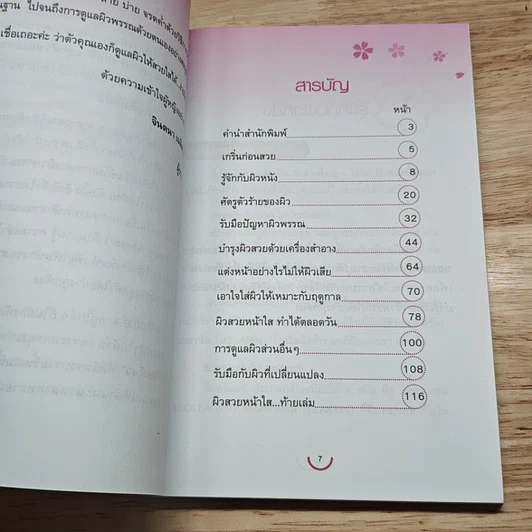 ฐาน ไปจนถึงการดูแลผิวพรรณด้วยตนเองอย่าง
เชื่อเถอะค่ะ ว่าตัวคุณเองก็ดูแลผิวให้สวยใสได้
ด้วยความเข้าใจผู้หญิง
จินตนา
สารบัญ
หน้า
คำนำสำนักพิมพ์ 3
เกริ่นก่อนสวย 5
รู้จักกับผิวหนัง 8
ศัตรูตัวร้ายของผิว 20
รับมือปัญหาผิวพรรณ 32
บำรุงผิวสวยด้วยเครื่องสำอาง 44
แต่งหน้าอย่างไรไม่ให้ผิวเสีย 64
เอาใจใส่ผิวให้เหมาะกับฤดูกาล 70
ผิวสวยหน้าใส ทำได้ตลอดวัน 78
การดูแลผิวส่วนอื่นๆ 100
รับมือกับผิวที่เปลี่ยนแปลง 108
ผิวสวยหน้าใส...ท้ายเล่ม 116
7